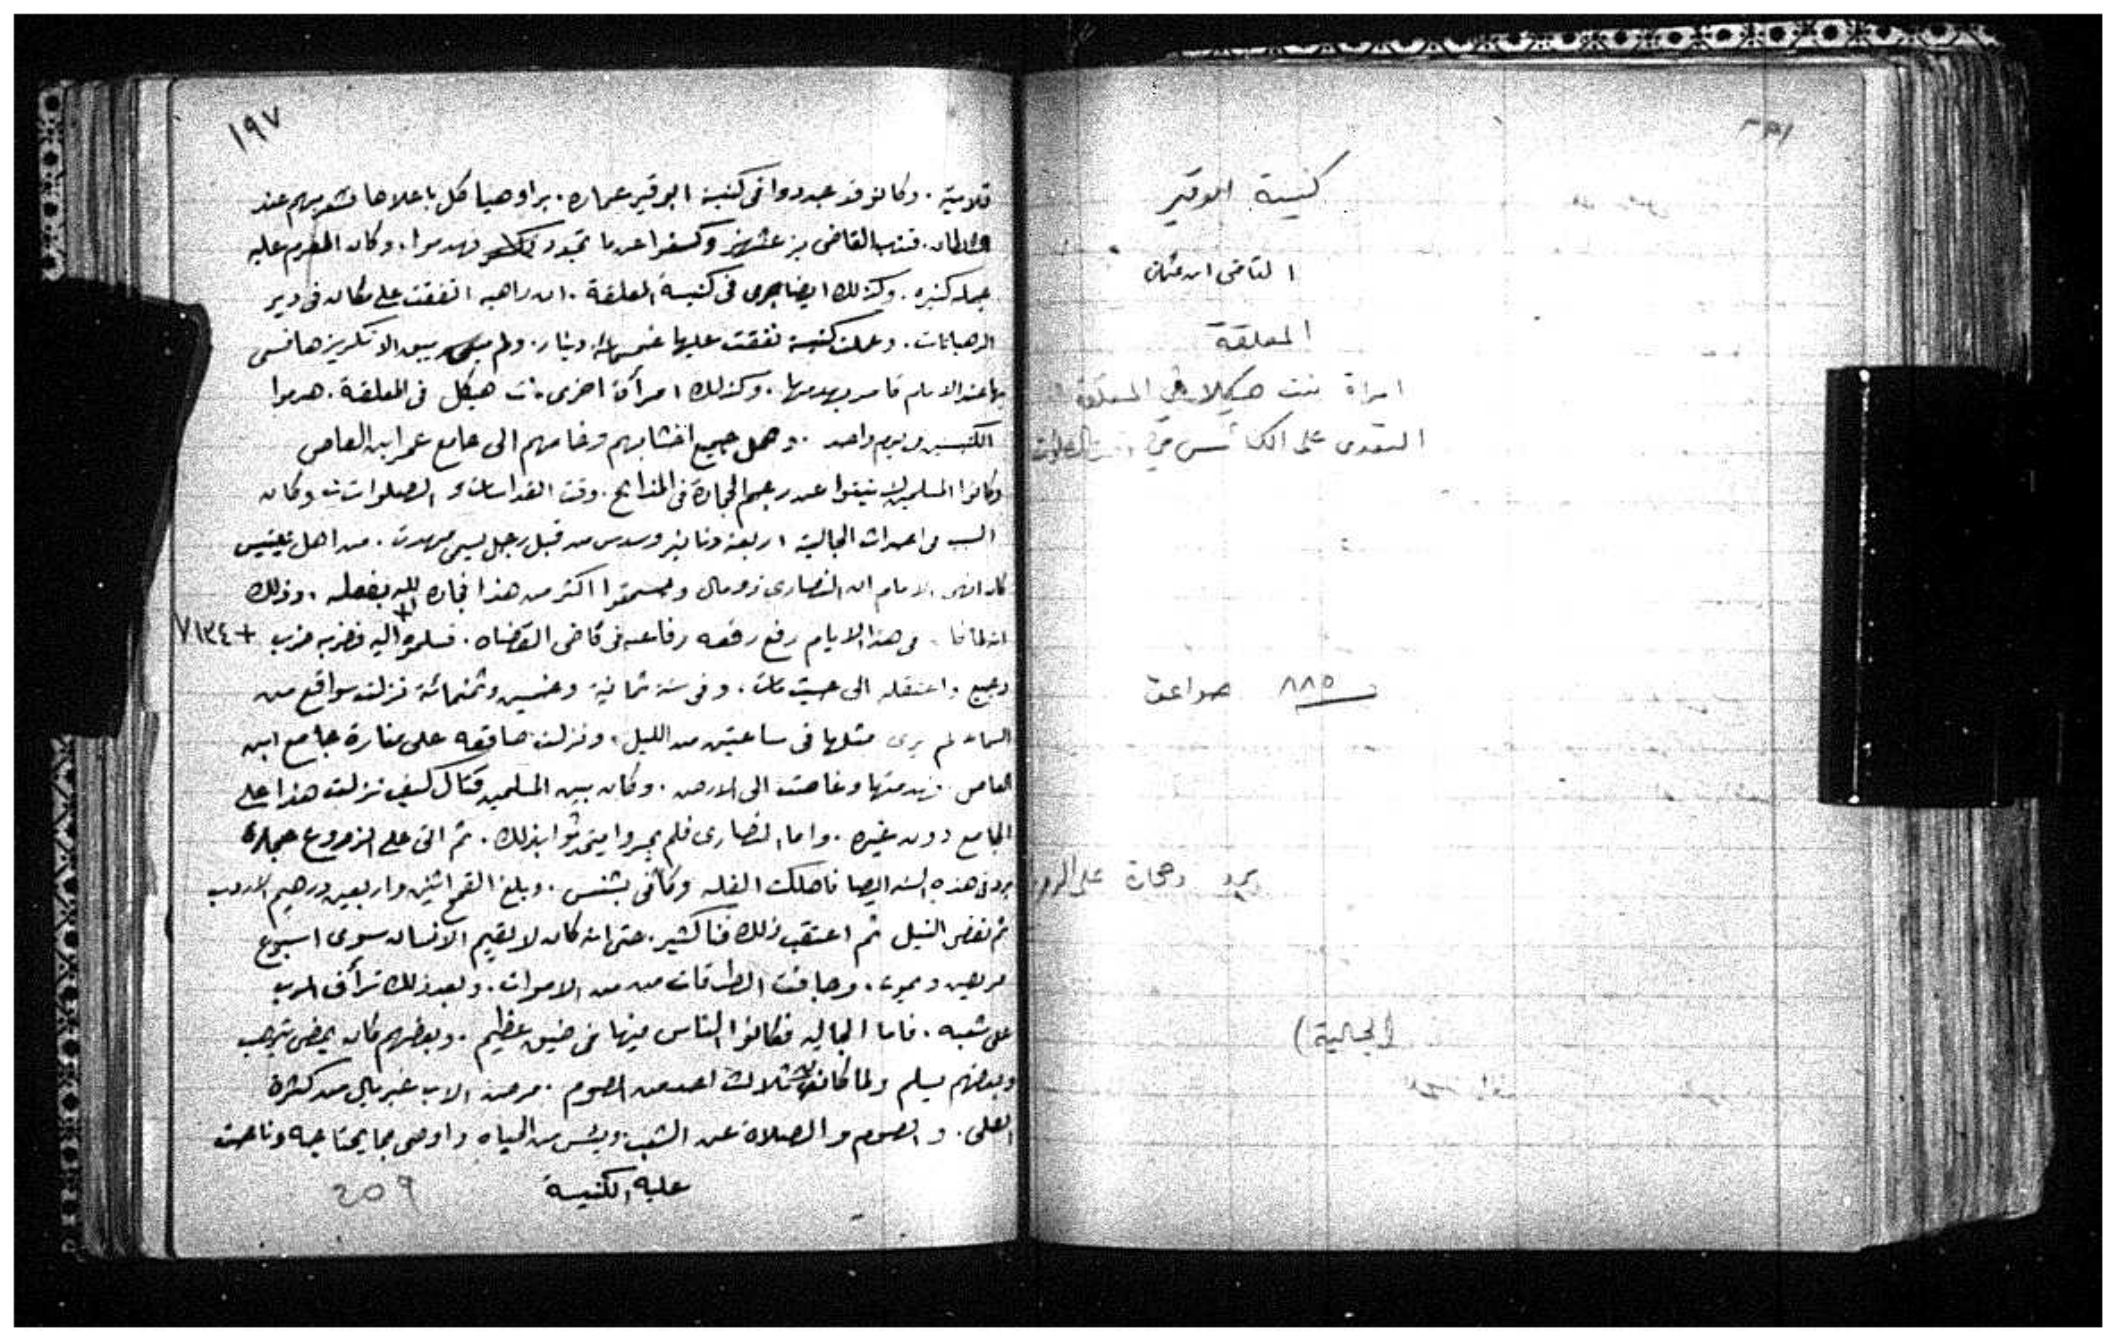 كنيسة ابوقير
القاضى ابن عثمان
المعلقة
امراة بنت هيكلا فى المعلقة
التعدى على الكنائس فى وقت الصلوات
٨٨٥ صواعق
برد وحجارة على الزرع
(الجالية)
١٩٧
قلاية . وكانو قد جددوا فى كنيسة ابوقير عماره . براو هيا كل باعلاها فشهر بهم عند
السلطان . فنزل القاضى بن عثمان وكشفوا عن ما تجدد فهدموا . وكان المغرم عليه
جمله كثيره . وكذلك ايضا جرى فى كنيسة المعلقة . ان راهبه اتفقت على مكان فى دير
الراهبات . وعملت كنيسة نفقت عليها خمسمائة دينار . ولم يبق الا تكريزها فسعى
بها عند الامام فامر بهدمها . وكذلك امرأة اخرى بنت هيكل فى المعلقة . هدموا
الكنيستين فى يوم واحد . وحمل جميع اخشابهم ورخامهم الى جامع عمر ابن العاص
وكانوا المسلمين عن رجم الحجارة فى المذابح . وقت القداسات و الصلوات وكان
السبب فى احداث الجالية اربعة دنانير وسدس من قبل رجل يسمى . من اهل تنيس
كان انهى الامام ان النصارى ذو مال ويستحقوا اكثر من هذا فجازه الله بفعله . وذلك
انه لما فى هذا الايام رفع رقعه رفاعه فى قاضى القضاه . فسلموا اليه فضربه ضرب + ٧١٣٤
وجيع واعتقله الى حيث مات . وفى سنة ثمانية وخمسين وثمنمائة نزلت سواقع من
السماء لم يرى مثلها فى ساعتين من الليل . ونزلت صاقعه على منارة جامع ابن
العاص . فهدمتها وغاصت الى الارض . وكان بين المسلمين قتال كيف نزلت هذا على
الجامع دون غيره . واما النصارى فلم يجسروا يتحدثوا بذلك . ثم القى على الزروع حجارة
برد فى هذه السنه ايضا فاهلكت الغله وكان فى بشنس . وبلغ القمح اثنين واربعين درهم الاردب
ثم نقص النيل ثم اعتقب ذلك فنا كثير . حتى انه كان لا يقيم الانسان سوى اسبوع
مريض ويموت . وجافت الطرقات من الاموات . وبعد ذلك ترأف الرب
على شعبه . فاما الجاليه فكانوا الناس منها فى ضيق عظيم . وبعضهم كان يمضى يترهب
وبعضهم يسلم ولما كان ثالث احد من الصوم . مرض الاب غبريال من كثرة
الصلى . و الصوم و الصلاة عن الشعب ويئس من الحياه و اوصى بما يحتاجه وناحت
عليه الكنيسة
209